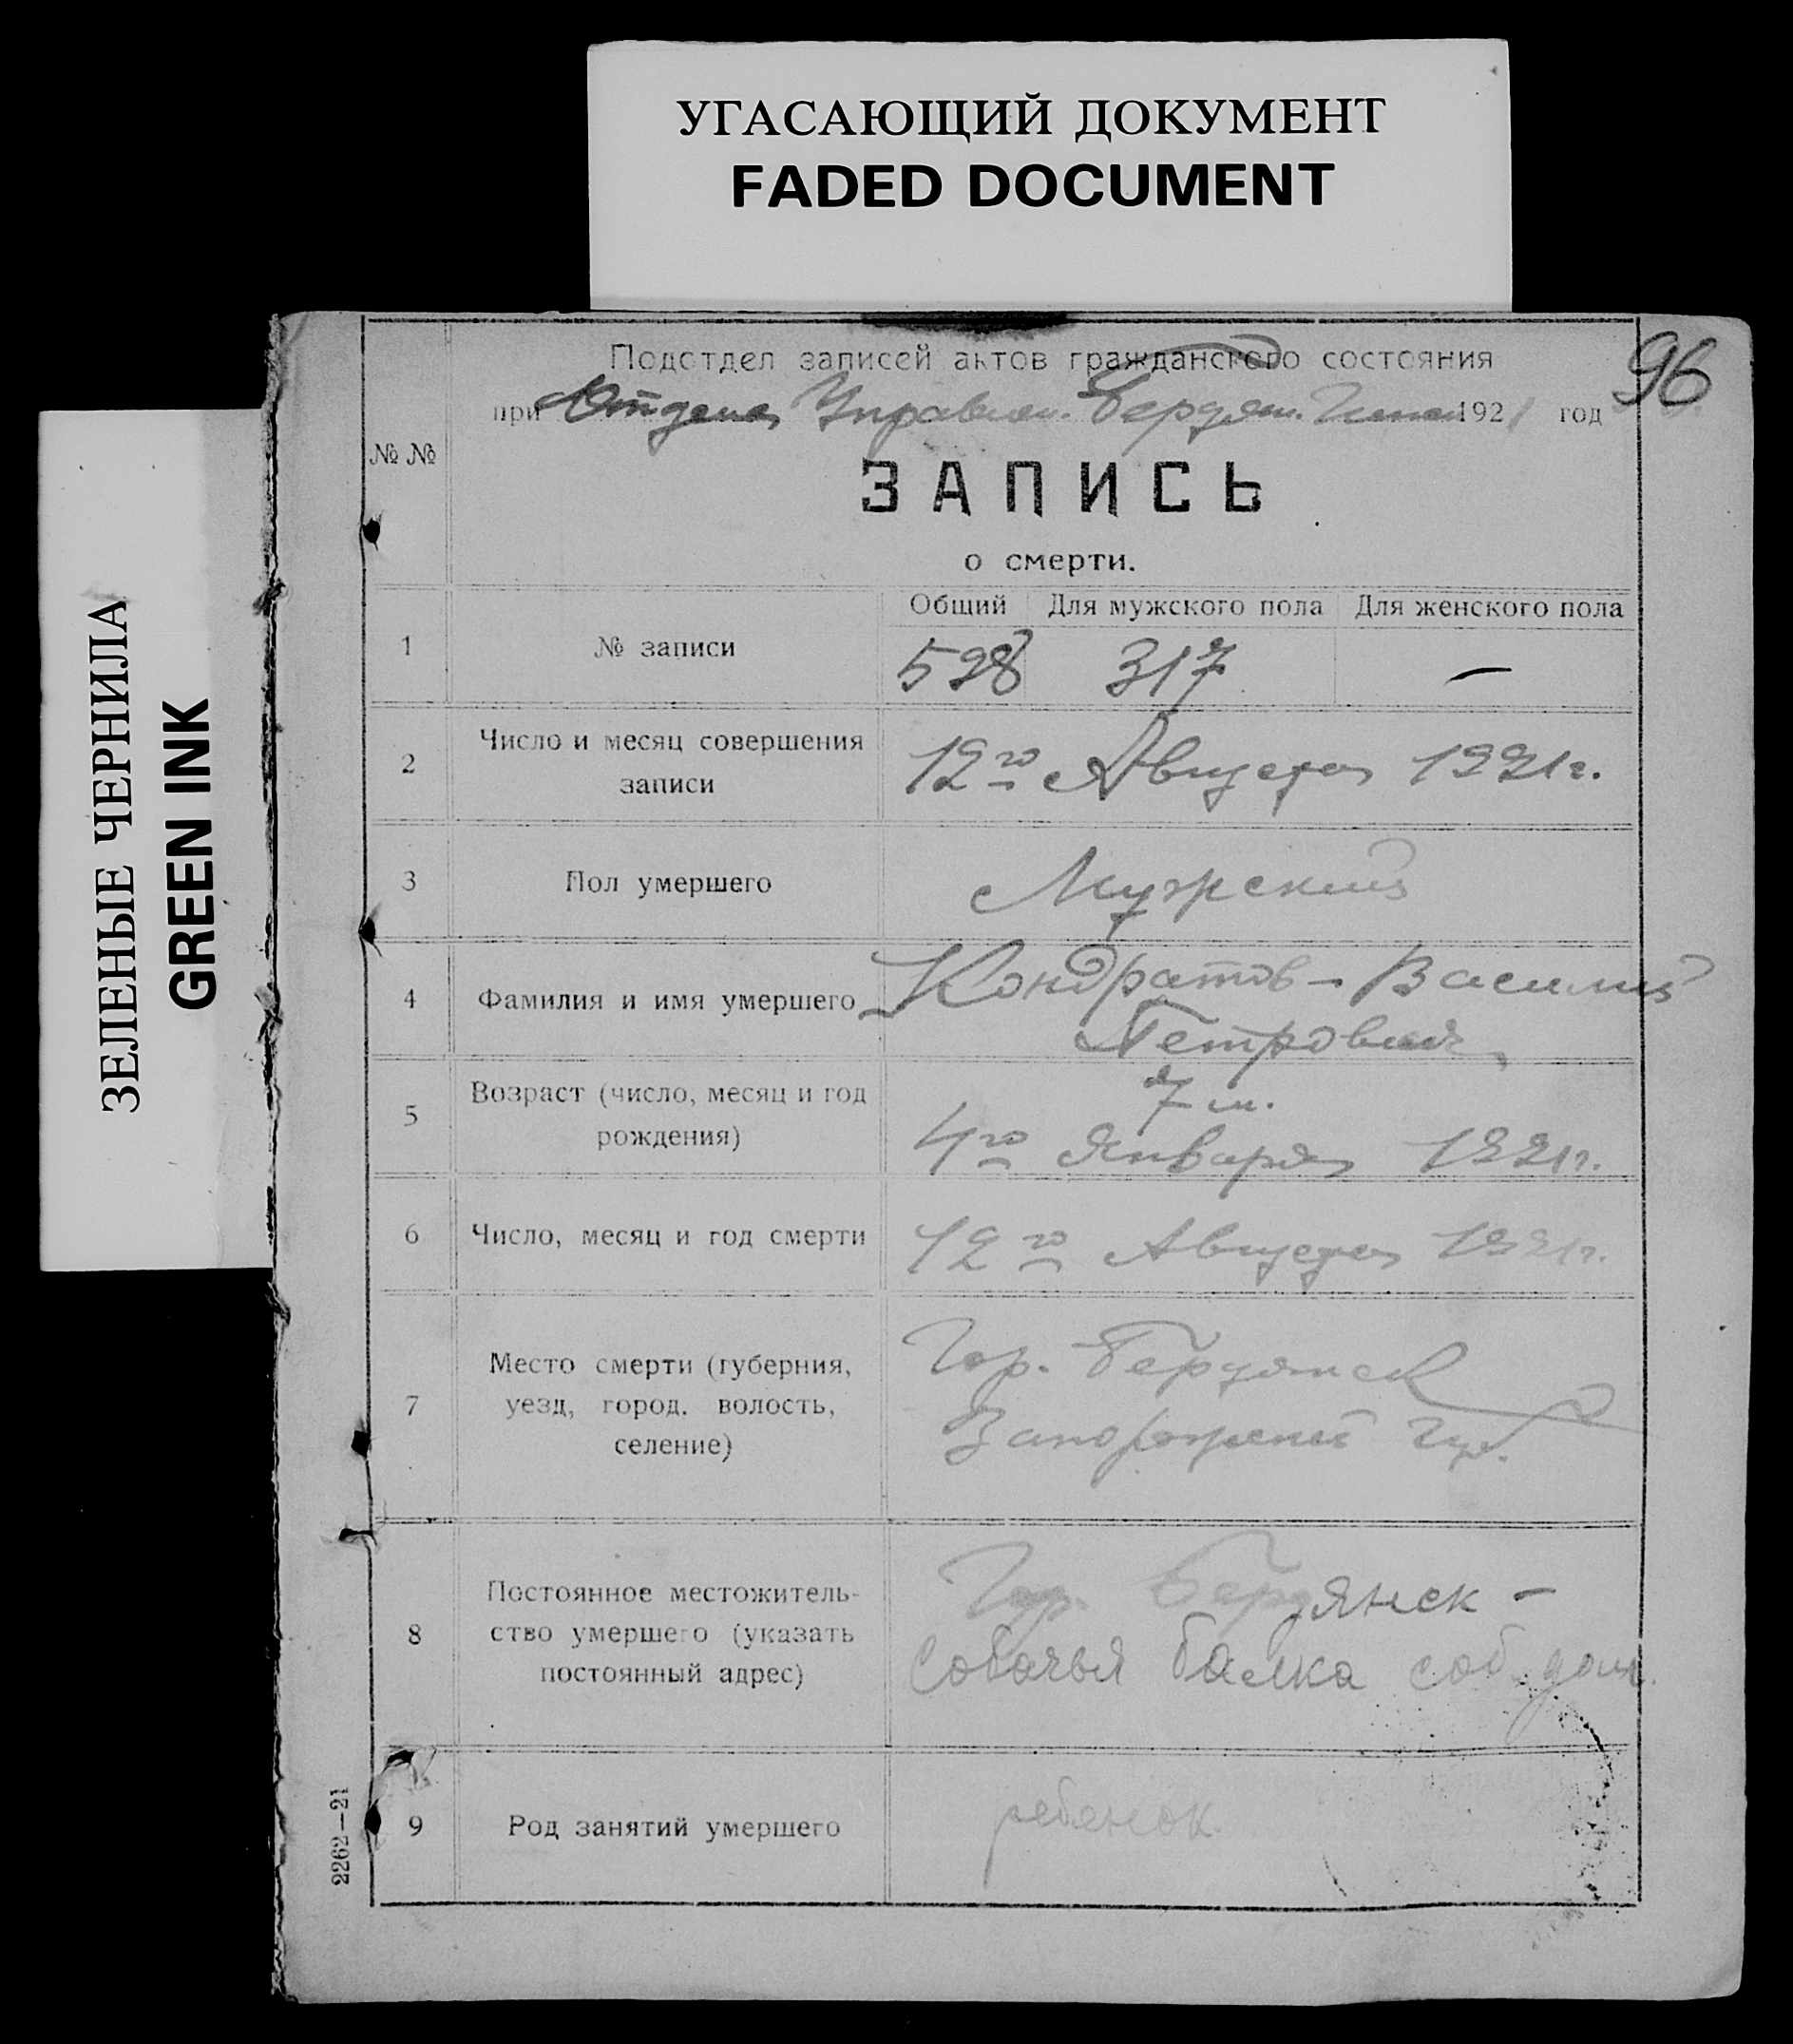 УГАСАЮЩИЙ ДОКУМЕНТ
FADED DOCUMENT
ЗЕЛЕНЫЕ ЧЕРНИЛА
GREEN INK
96
Подотдел записей актов гражданского состояния
при Отдела Управлен. Бердян. 1921 год
№ №
ЗАПИСЬ
о смерти.
Общий Для мужского пола Для женского пола
1 № записи 528 317 —
2 Число и месяц совершения
записи
12го Августа 1921г.
3 Пол умершего Мужский
4 Фамилия и имя умершего Кондратов - Василий
Петрович
5 Возраст (число, месяц и год
рождения)
7 м.
4го Января 1921г.
6 Число, месяц и год смерти 12го Августа 1921г.
7 Место смерти (губерния,
уезд, город. волость,
селение)
Гор. Бердянск
Запорожской гу.
8 Постоянное местожитель-
ство умершего (указать
постоянный адрес)
Гор. Бердянск -
Собачья балка соб. дом.
9 Род занятий умершего ребенок
2262—21